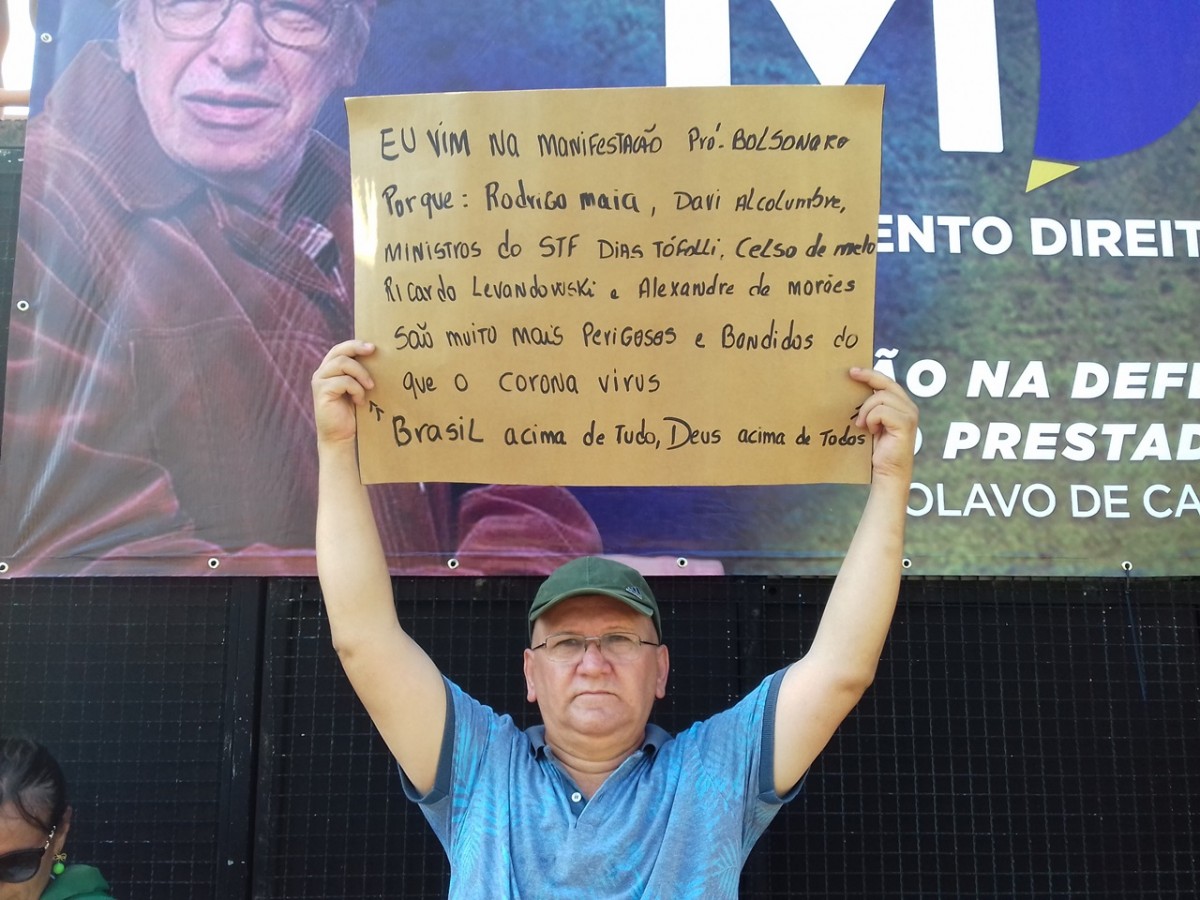 M
EU VIM NA MANIFESTAÇÃO PRÓ-BOLSONARO
Porque: Rodrigo maia, Davi Alcolumbre,
MINISTROS do STF DIAS TÓFOLLI, Celso de melo
Ricardo Levandowski e Alexandre de morães
São muito mais Perigosos e Bandidos do
que o corona virus
Brasil acima de Tudo, Deus acima de Todos
ENTO DIREIT
ÃO NA DEFE
O PRESTAD
OLAVO DE CA